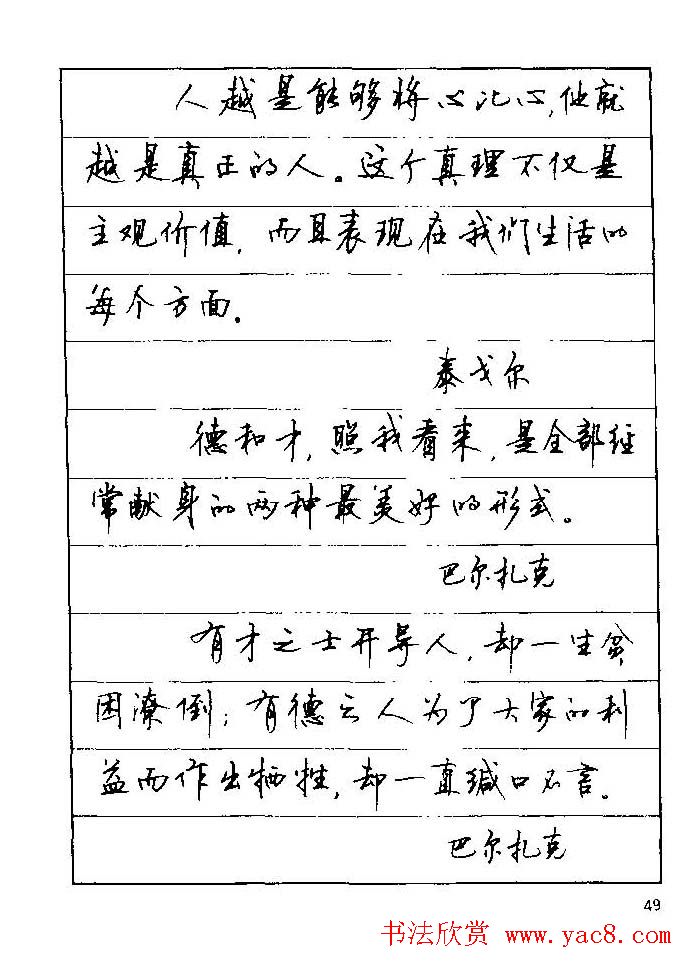 人越是能够将心比心,他就
越是真正的人。这个真理不仅是
主观价值,而且表现在我们生活的
每个方面。
泰戈尔
德和才,照我看来,是全部经
常献身的两种最美好的形式。
巴尔扎克
有才之士开导人,却一生贫
困潦倒;有德之人为了大家的利
益而作出牺牲,却一直缄口不言。
巴尔扎克
49
书法欣赏 www.yac8.com